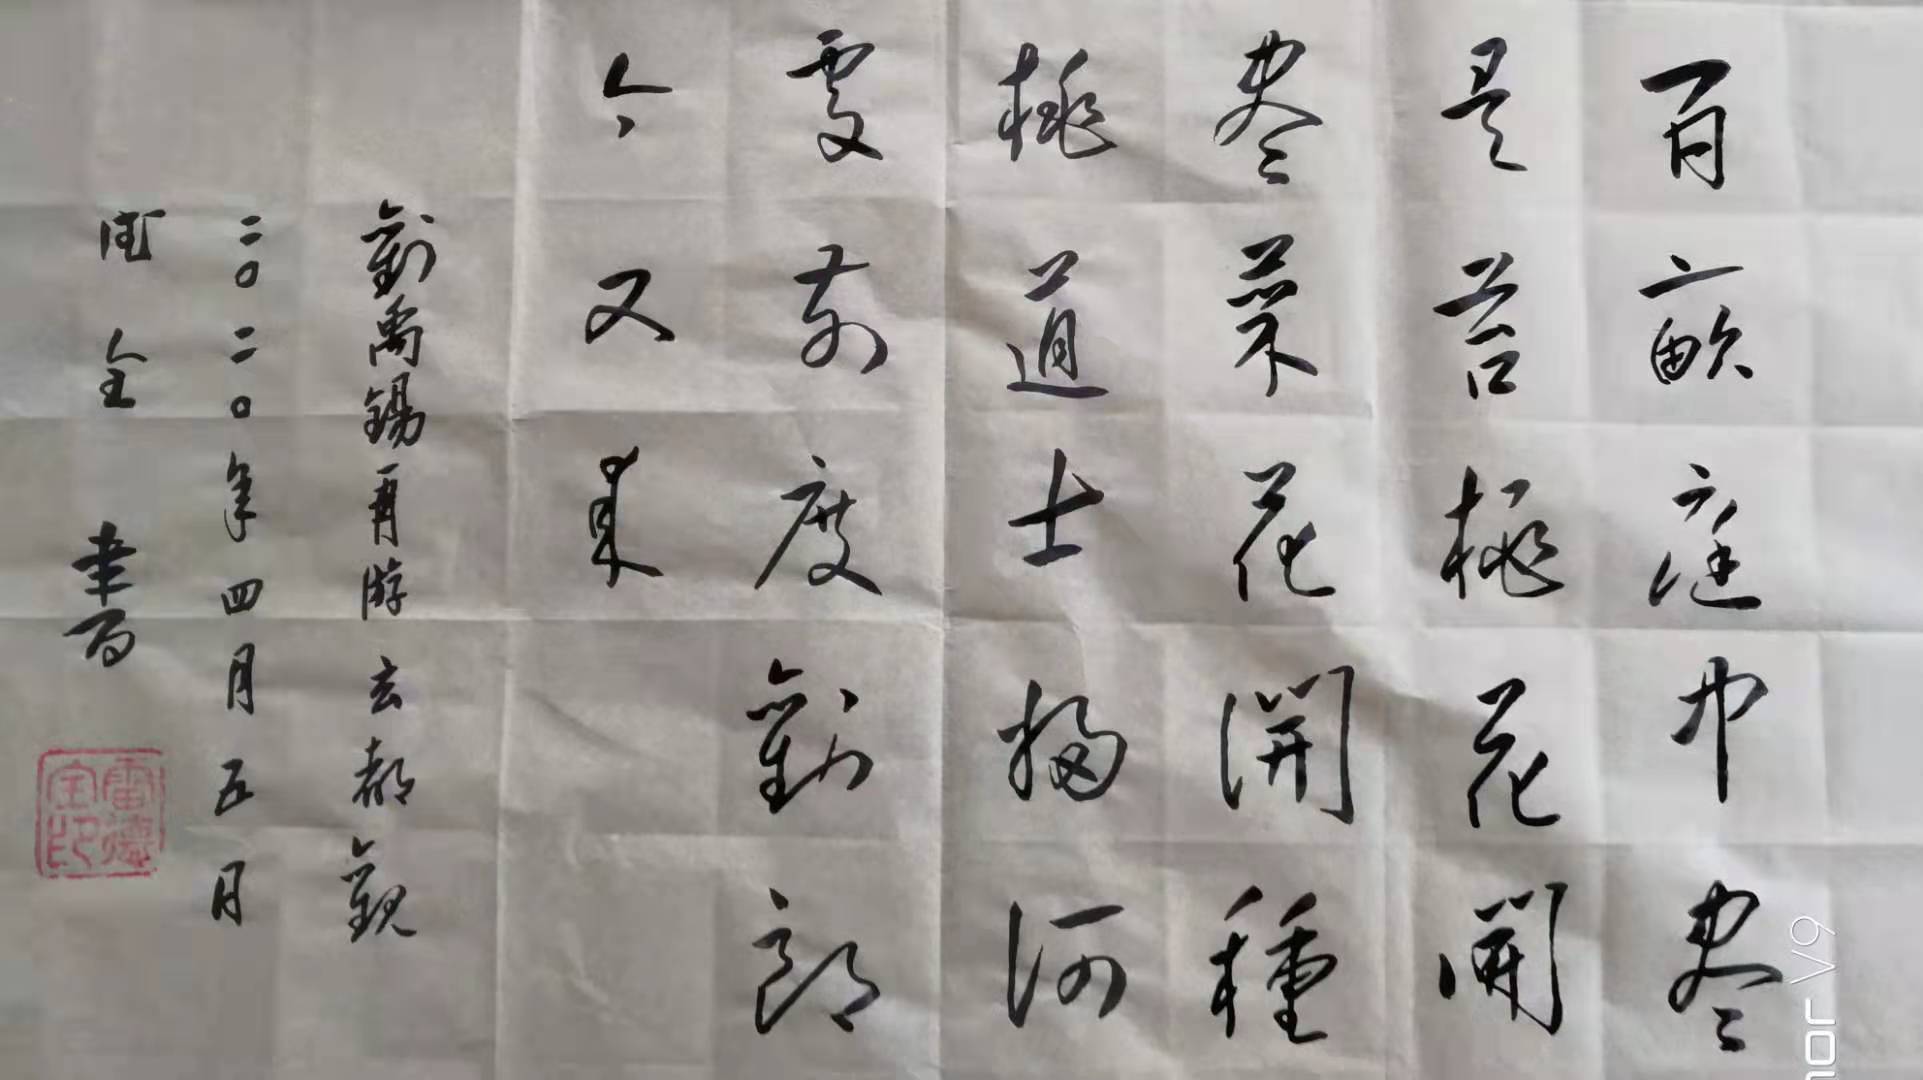 百畝庭中尽
是苔桃花開
尽菜花開種
桃道士歸何
處前度劉郎
今又來
劉禹錫再游玄都觀
二〇二〇年四月五月
德全書
雷德全印
nor V9